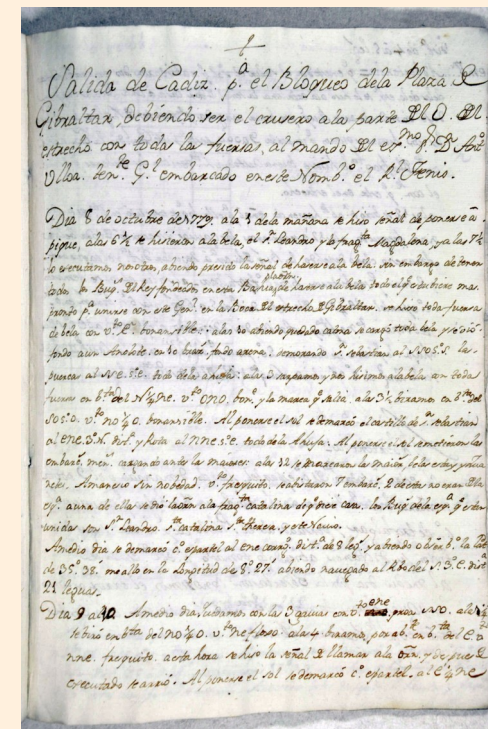 Salida de Cadiz pª el Bloqueo dela Plaza D
Gibraltar, debiendo ser el crusero ala parte Del O. Del
estrecho con todas las fuersas, al mando Del exmo Sr Dn Antº
Ulloa tente Gl embarcado en este Nombº el Rl Fenis.
Dia 8 de octubre de 1779, ala 5 de la mañana se hiso señal de ponerse â
pique, alas 6½ se hisieron ala bela, el Sn Leandro, y la fragta Magdalena, y a las 7½
lo executamos nosotros, abiendo presedido la señal de haserse ala bela sin embargo de tener
todos los Buqs Del Rey fondeados en esta Bahia, de haserse ala bela todo el qe estubiese mas
pronto pª unirse con este Genl en la Boca Del estrecho D Gibraltar. se hiso toda fuersa
de bela con vto bonansible: alas 10 abiendo quedado calma se cargó toda bela y se dió
fondo a un Anclote, en 10 brasas, fondo arena, demorando Sn Sebastian al SSO5ºS. las
puercas al N E. 5º E. todo dela ahuja: alas 3 sarpamos, y nos hisimos ala bela con toda
fuersa en bta del N¼NE. vto ONO. bonle y la marea qe salia, alas 3½ biramos en bta del
SO5ºO. vto NO¼O. bonansible. Al ponerse el sol se demarcó el castillo de Sn Sebastian
al ENE.3ºN. distª y Rota al NNE.5ºE. todo dela Ahuja. Al ponerse el sol se metieron las
embars mens cargando antes las maiores: alas 12 se marearon las maiors
Amanecio sin nobedad, vto fresquito, se abistaron 7 embars, 2 de estas no eran Dla
esqª, a una de ellas se dió la ala fragta catalina los Buqs dela esqª qe estan
unidos son Sn Leandro, Sta catalina Sta theresa, y este Navio.
A medio dia se demarcó cº espartel al ENE corqº distª de 8 legs, y abiendo observº la latd
de 35º 38'. me allo en la Longitud de 8º 27' abiendo navegado al Rbo del S.3º E. distª
21 leguas.
Dia 9 al 10. A medio dia, quedamos con las 3 gavias con vto ENE proa SSO. alas
se biró en bta del NO¼O. vto NE floxo. alas 4 biramos, por abte en bta del E. vto
NNE. fresquito. a esta hora se hiso la señal D llamar ala orn. y despues D
executado se arrió. Al ponerse el sol se demarcó cº espartel al E¼NE